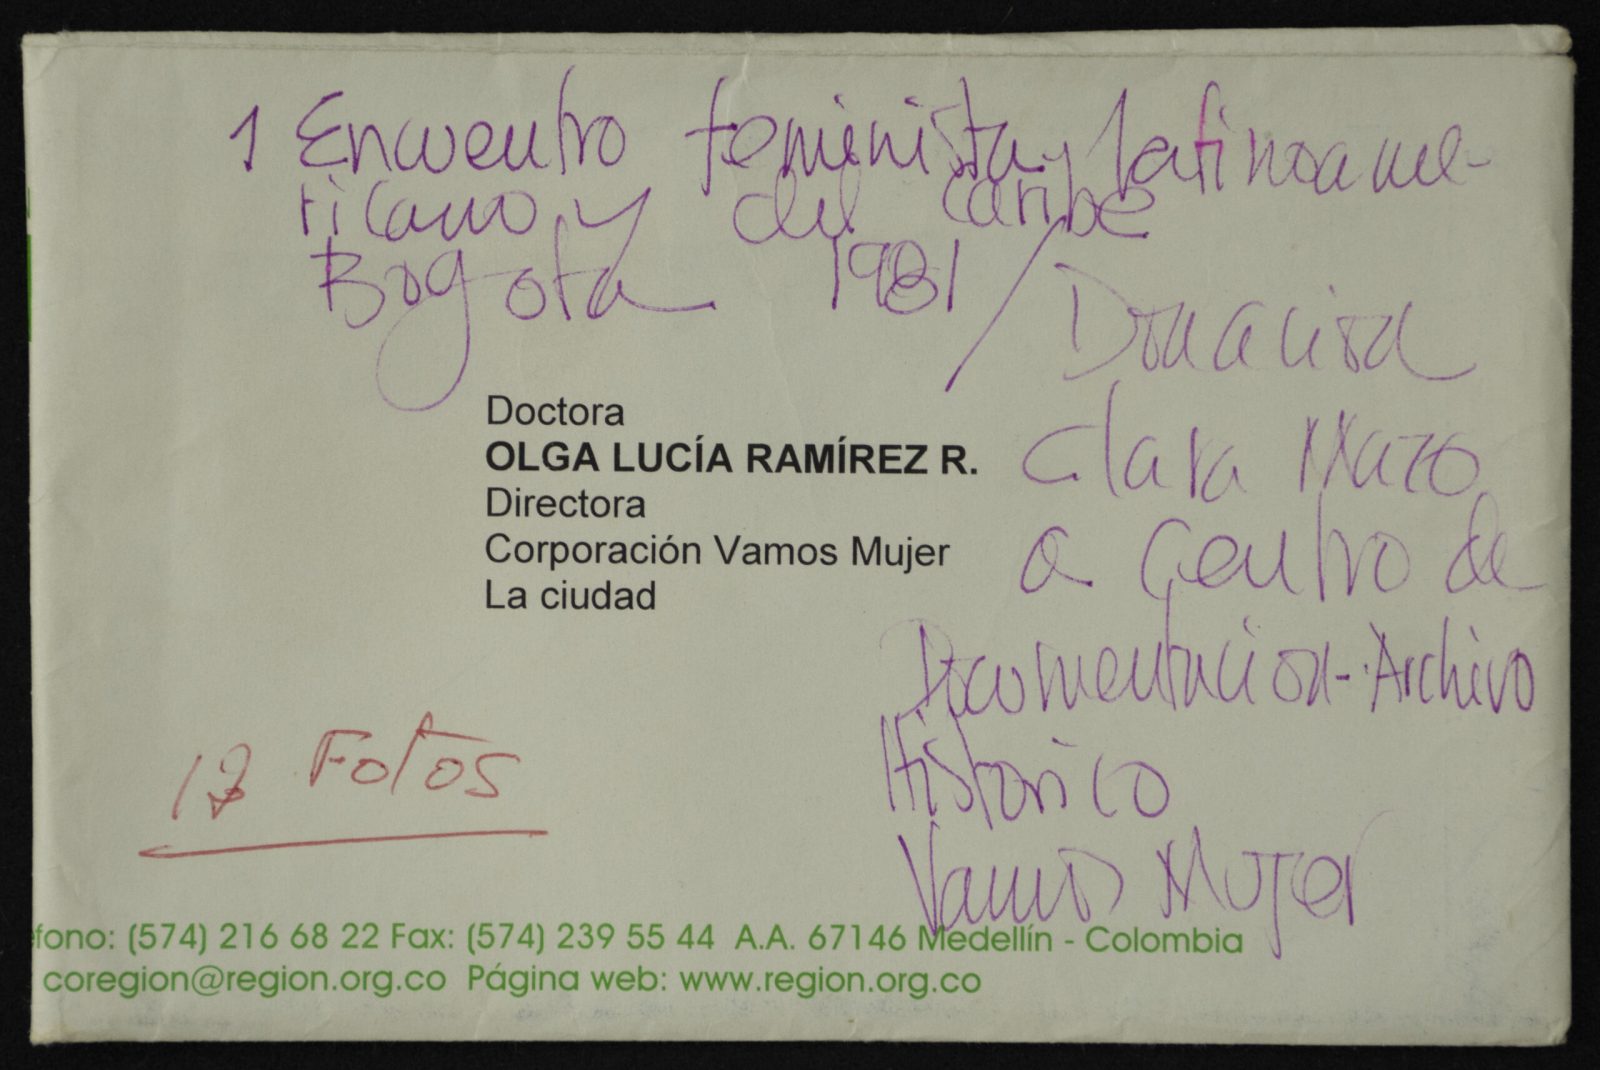 1 Encuentro feminista y latinoame-
ricano y del Caribe
Bogota 1981 /
Donacion
Clara Mazo
a Centro de
Documentacion - Archivo
Historico
Vamos Mujer
Doctora
OLGA LUCÍA RAMÍREZ R.
Directora
Corporación Vamos Mujer
La ciudad
Fotos
fono: (574) 216 68 22 Fax: (574) 239 55 44 A.A. 67146 Medellín - Colombia
coregion@region.org.co Página web: www.region.org.co